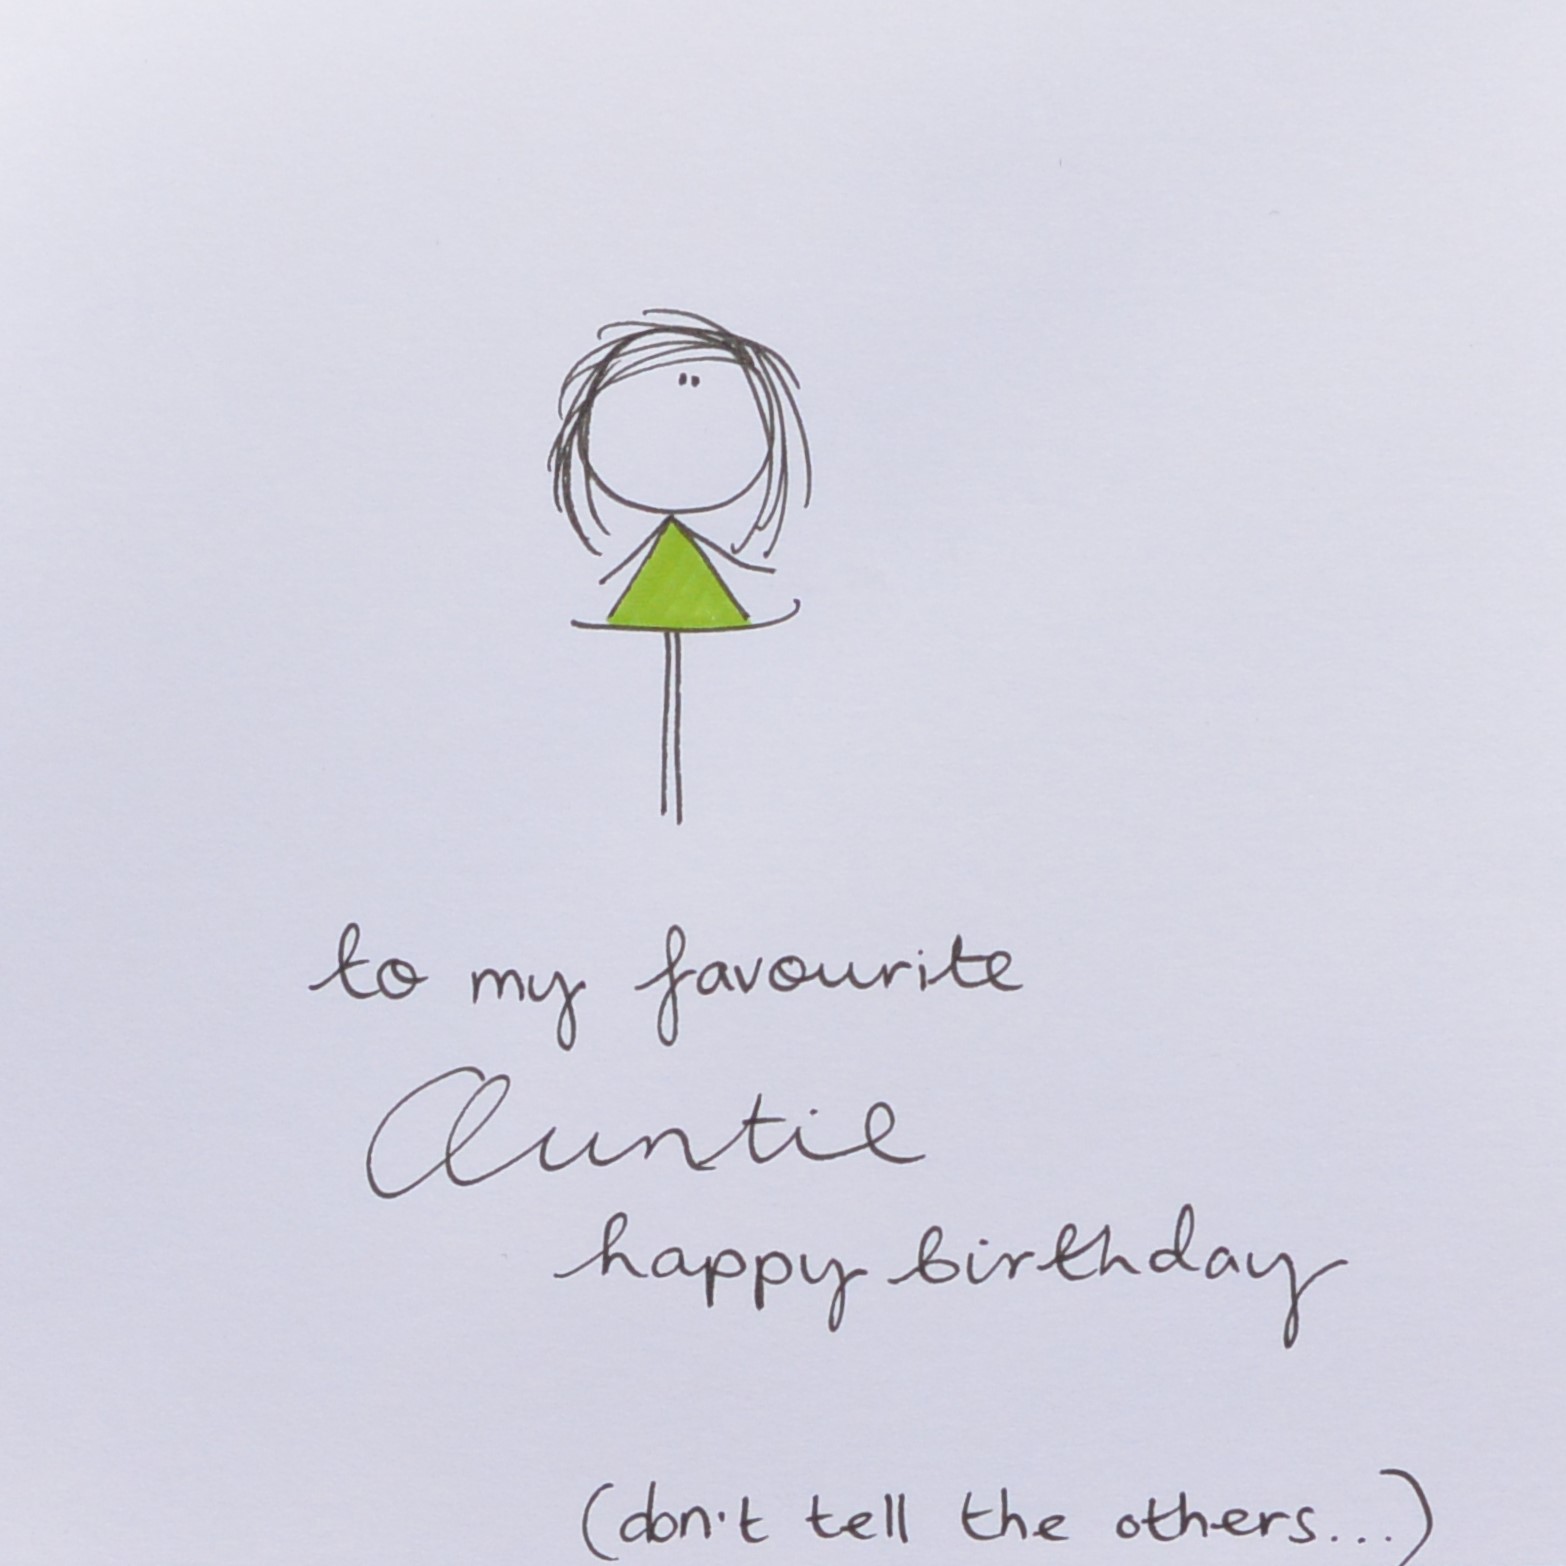 to my favourite
Auntie
happy birthday
(don't tell the others...)